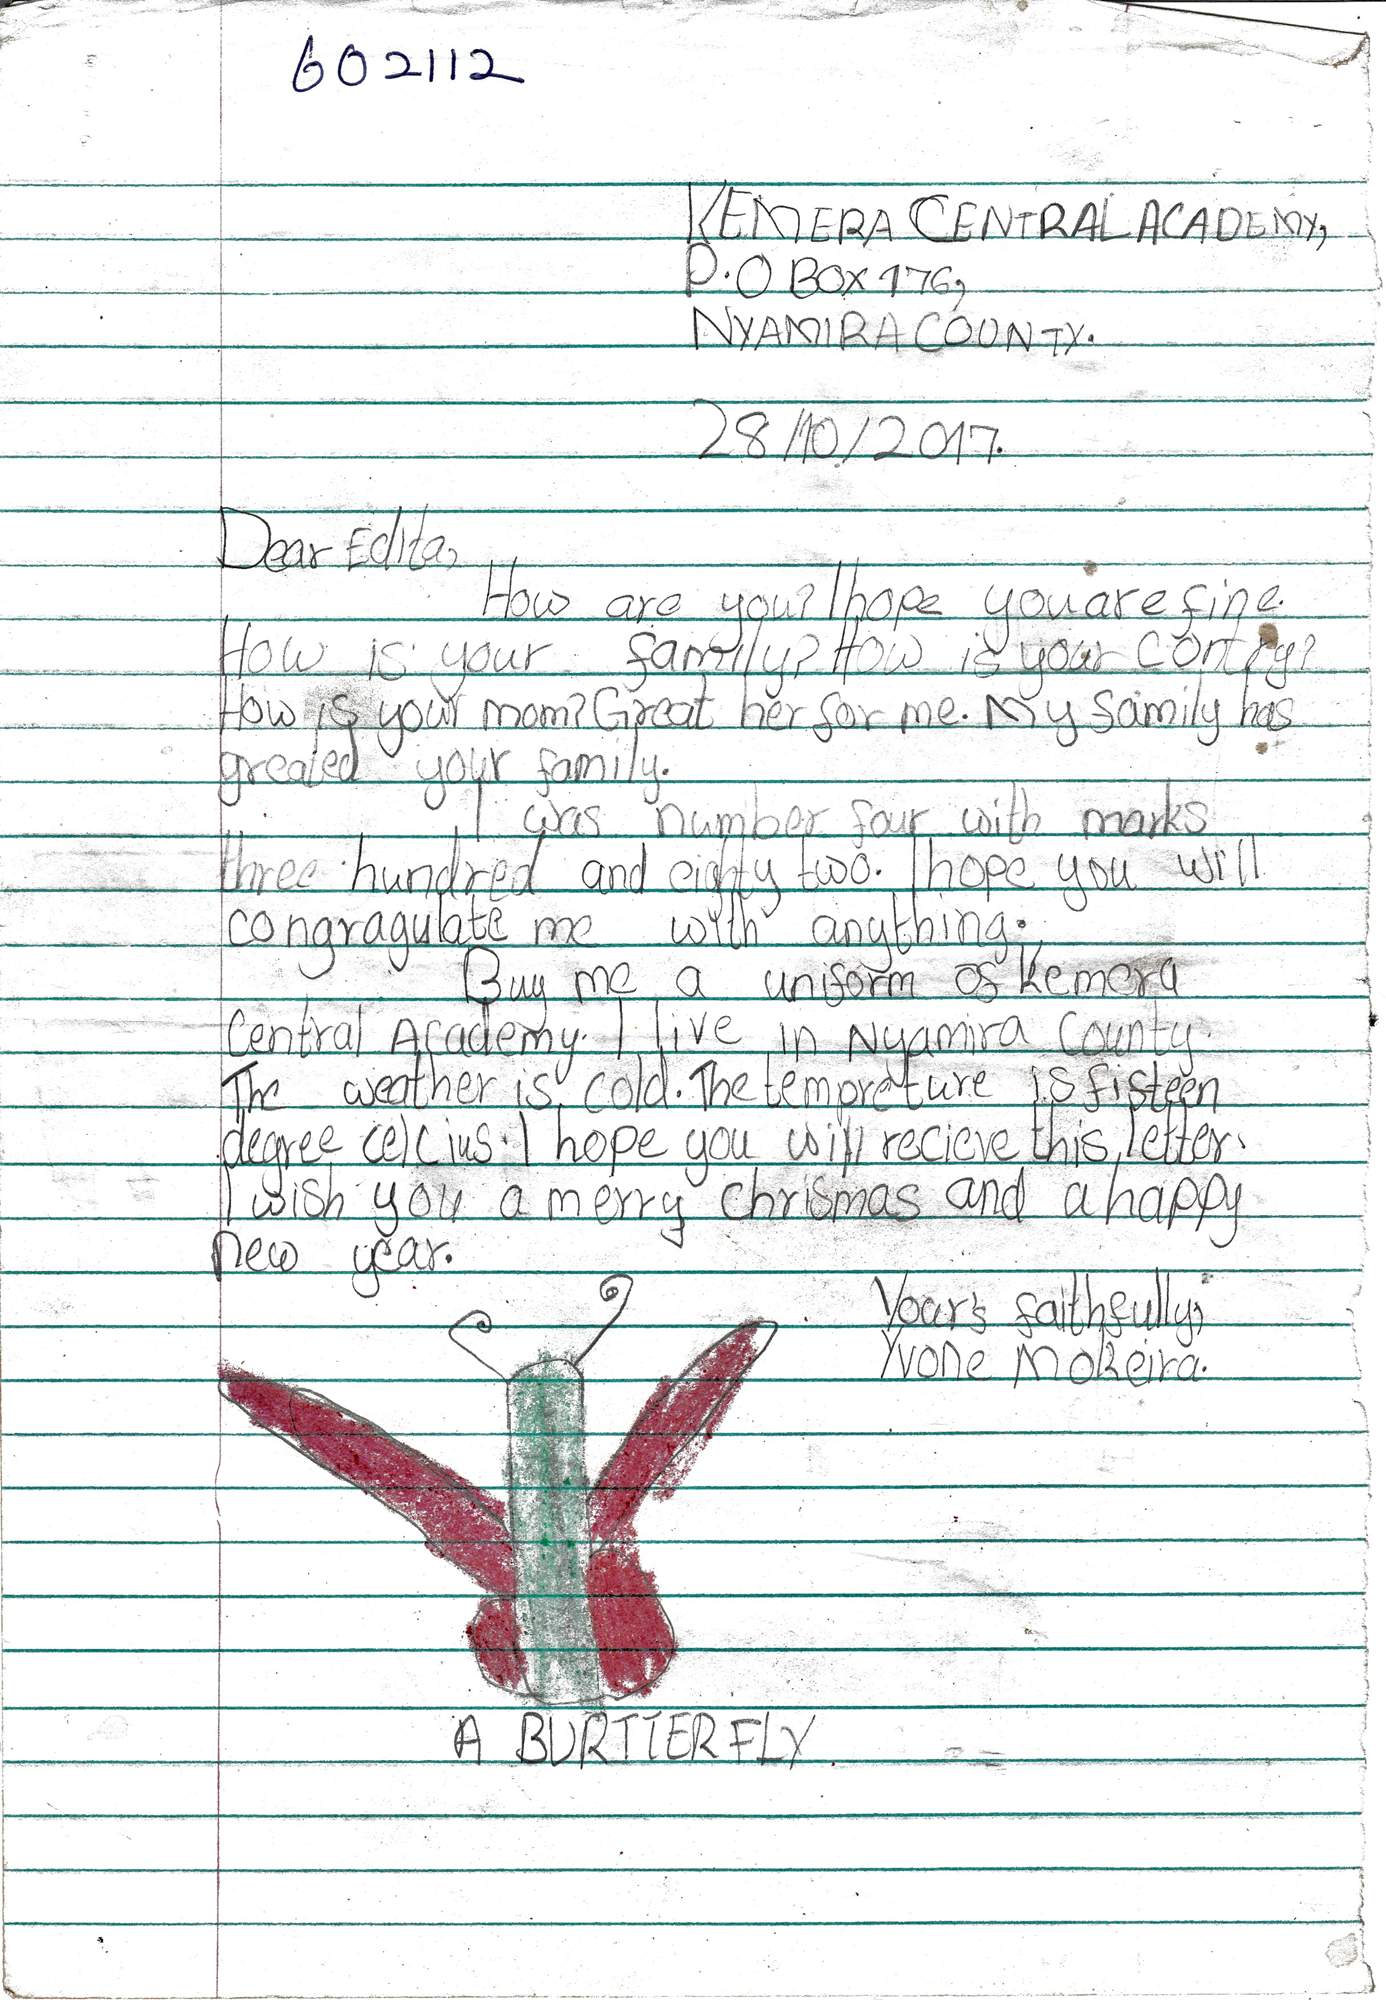 602112
KEMERA CENTRAL ACADEMY,
P.O BOX 176,
NYAMIRA COUNTY.
28/10/2017.
Dear Edita,
How are you? I hope you are fine.
How is your family? How is your contry?
How is your mom? Great her for me. My family has
greated your family.
I was number four with marks
three hundred and eighty two. I hope you will
congragulate me with anything.
Buy me a uniform of Kemera
Central Academy. I live in Nyamira County.
The weather is cold. The temprature is fifteen
degree celcius. I hope you will recieve this letter.
I wish you a merry chrismas and a happy
new year.
Your's faithfully,
Yvone Mokeira.
A BURTTERFLY